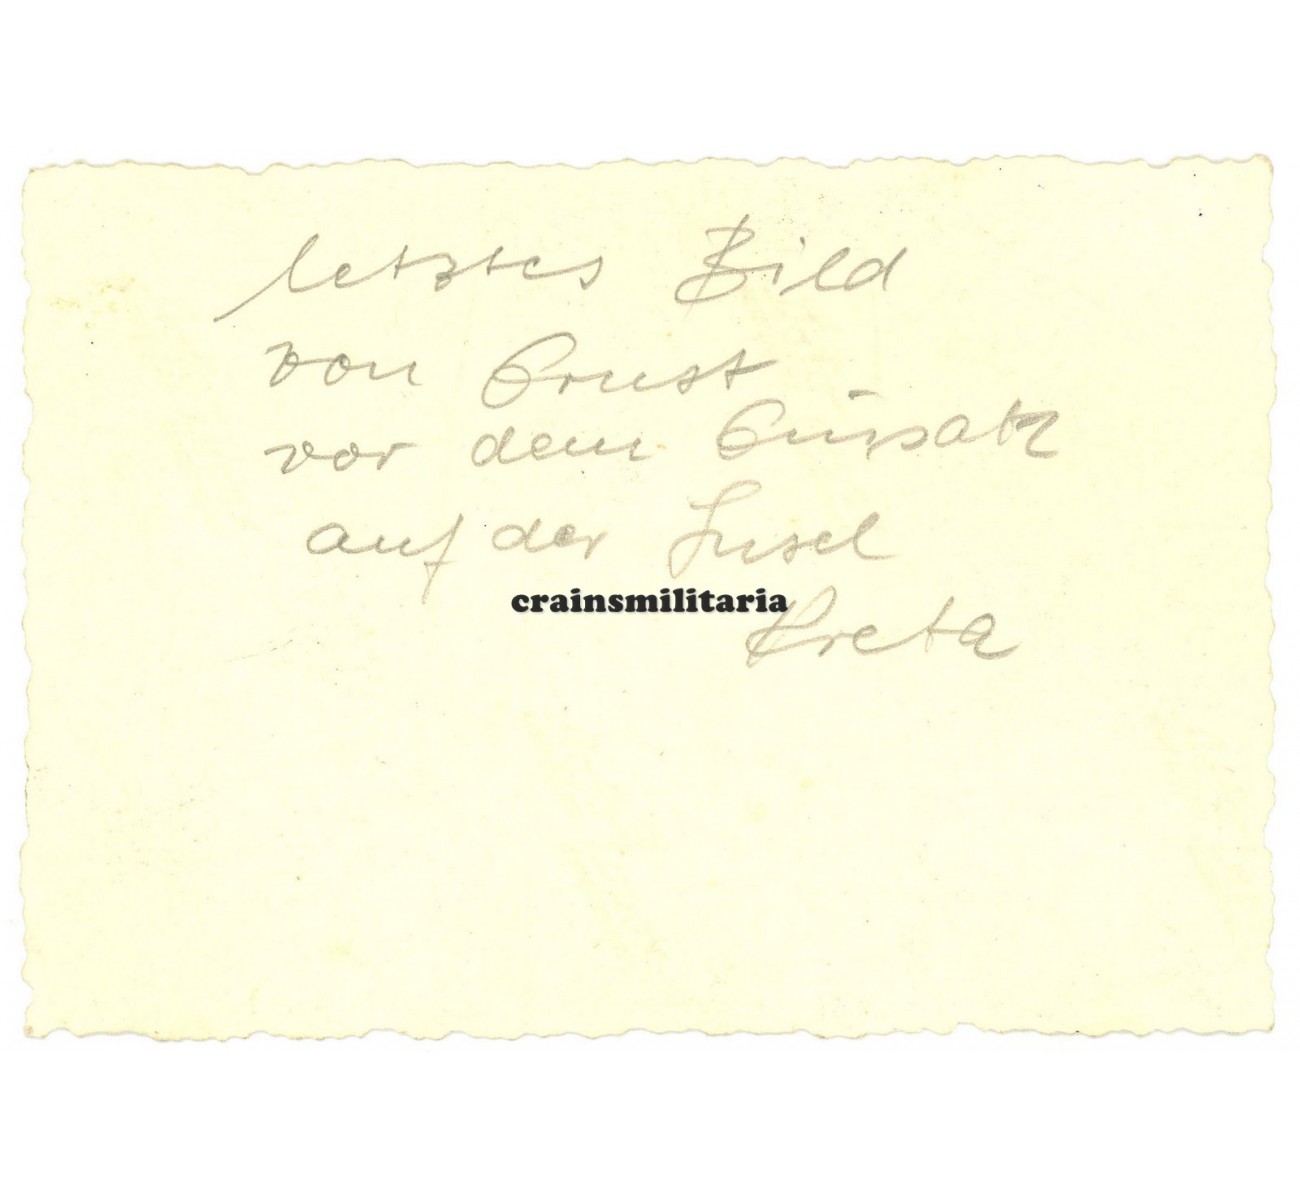 letztes Bild
von Ernst
vor dem Einsatz
auf der Insel
crainsmilitaria
Kreta